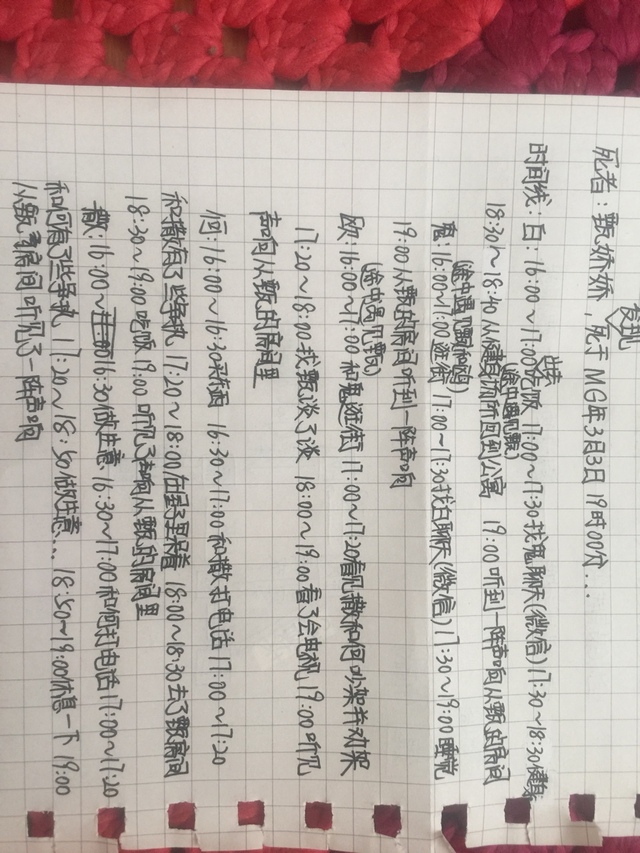 发现
死者：甄娇娇，死于MG年3月3日19时00分...
时间线：白：16:00～17:00出去吃饭 17:00～17:30找鬼聊天(微信)17:30～18:30健身
(途中遇见甄)
18:30～18:40从健身场所回到公寓 19:00听到一阵声响从甄的房间
(途中遇见甄和鸥)
鬼：16:00～17:00逛街 17:00～17:30找白聊天(微信)17:30～19:00睡觉
19:00从甄的房间听到一阵声响
(途中遇见甄)
欧：16:00～17:00和鬼逛街 17:00～17:20看见撒和何吵架并劝架
17:20～18:00找甄谈了谈 18:00～19:00看了会电视19:00听见
声响从甄的房间里
何：16:00～16:30采购 16:30～17:00和撒打电话 17:00～17:20
和撒有了些争执 17:20～18:00在屋子里呆着 18:00～18:30去了甄房间
18:30～19:00吃饭 19:00听见了声响从甄的房间里
撒：16:00～16:30做生意 16:30～17:00和何打电话17:00～17:20
和何有了些争执 17:20～18:50做生意... 18:50～19:00休息一下 19:00
从甄的房间听见了一阵声响